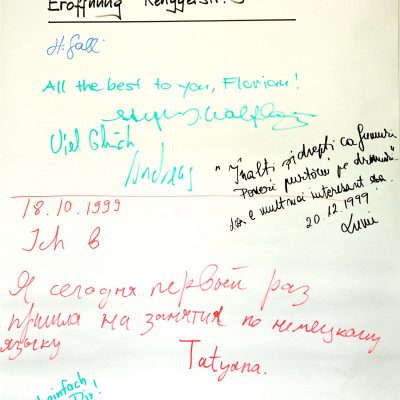 Eröffnung
H. Gall
All the best to you, Florian!
Viel Glück
Andreas
"Înalți și drepți ca fumuri
Poveri purtăm pe drumuri"
dar e mult mai interesant așa
20.12.1999
18.10.1999
Ich B
Я сегодня первый раз
пришла на занятия по немецкому
языку
Tatyana.
einfach
Dir!